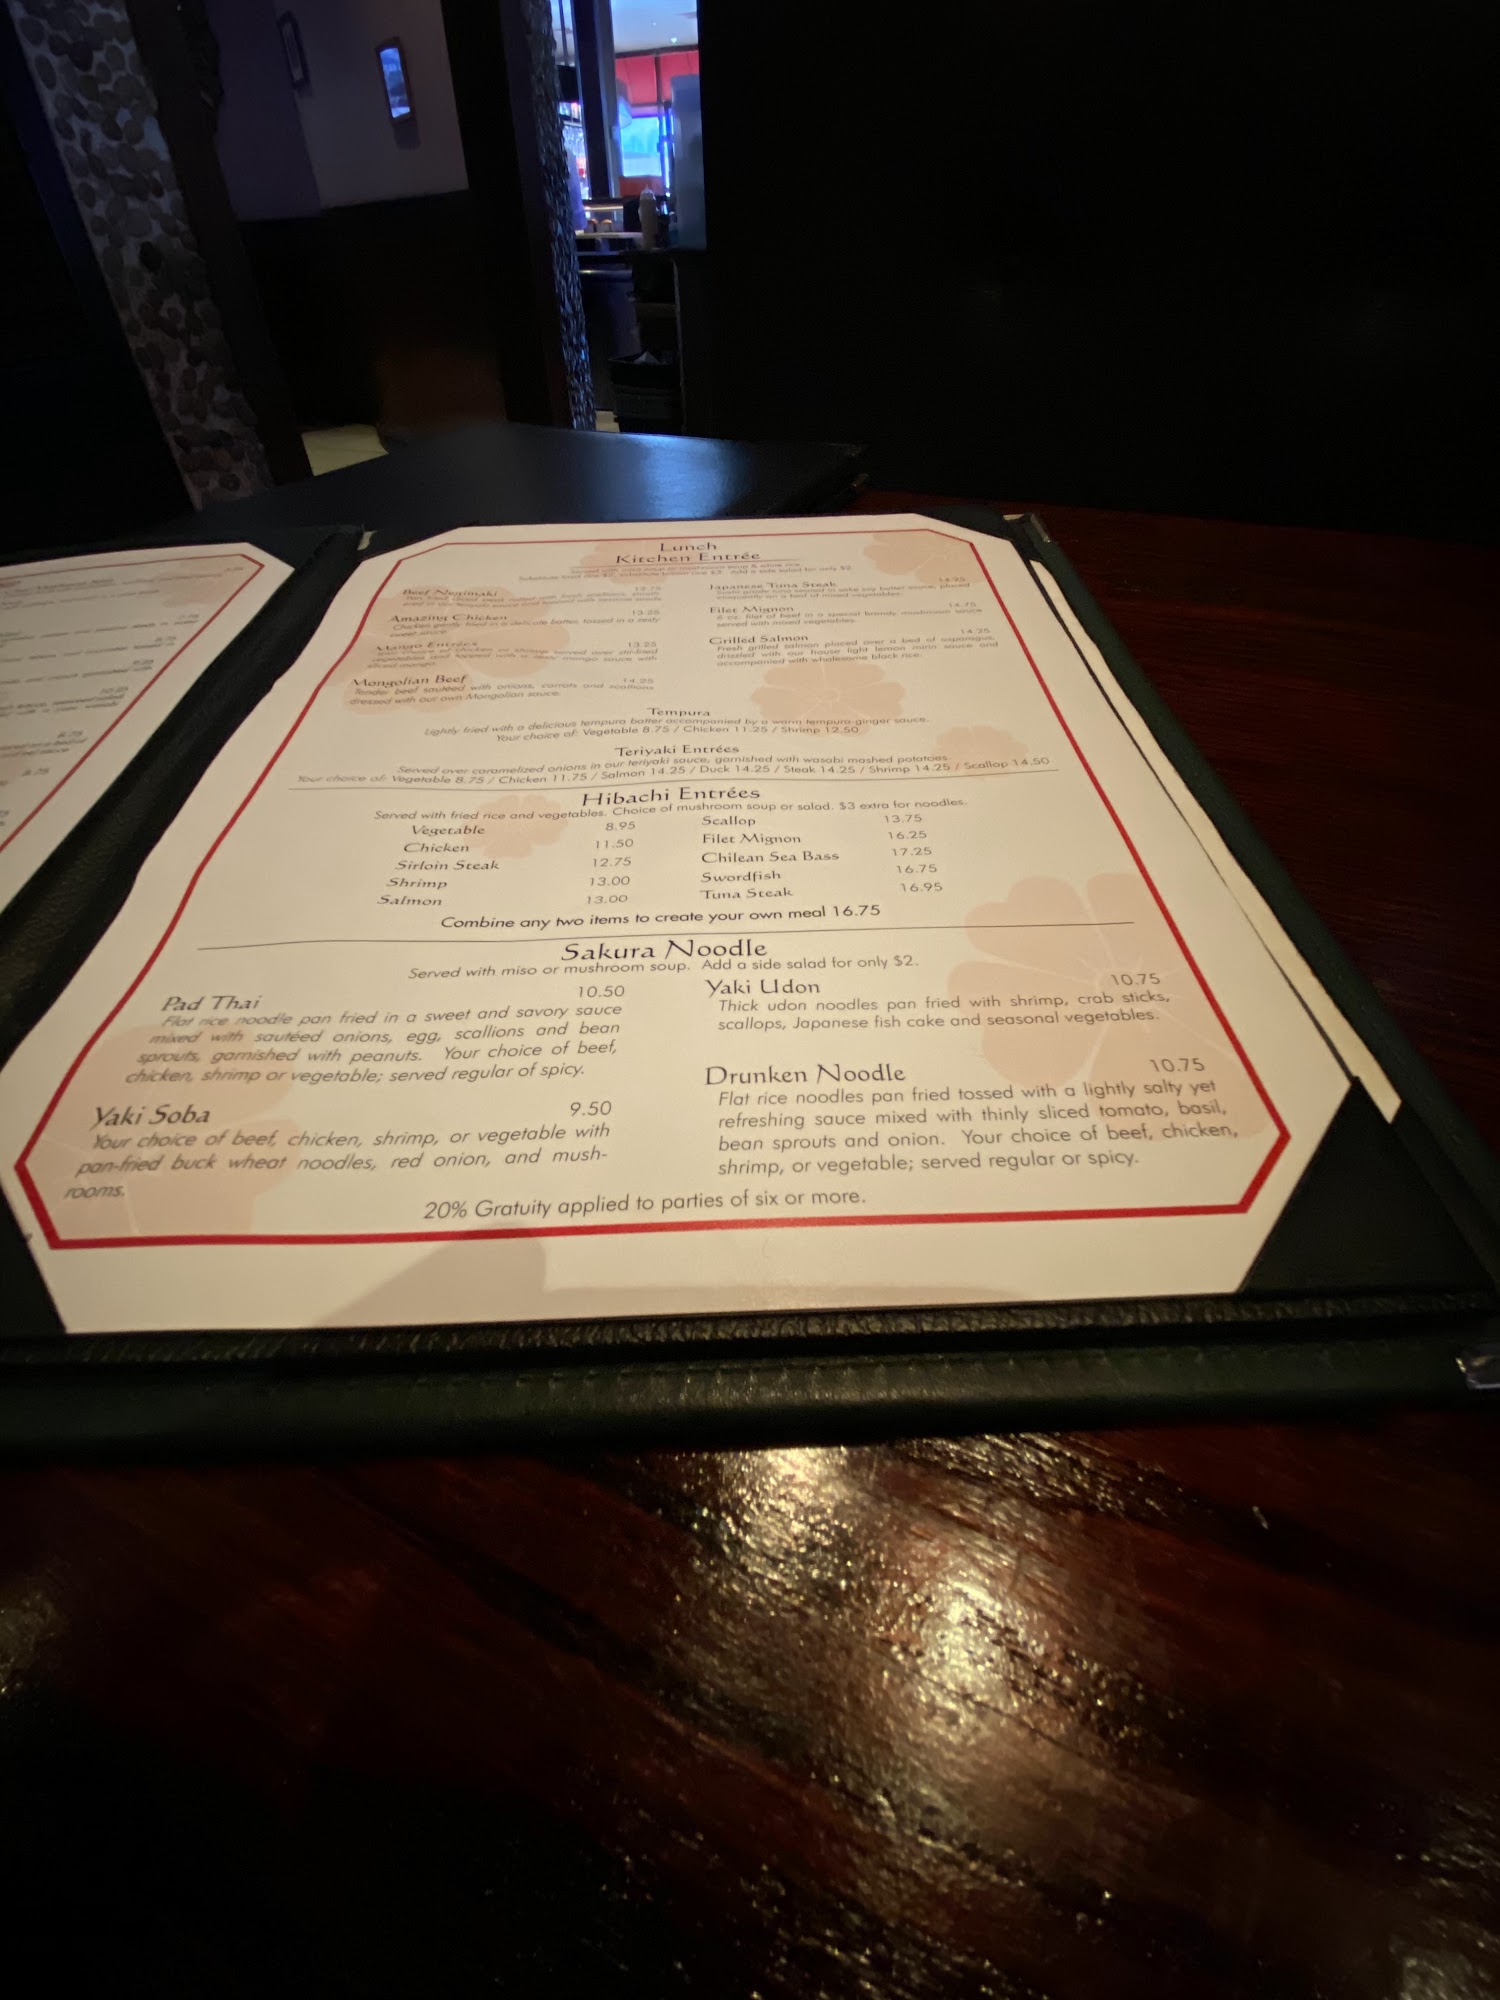 Lunch
Kitchen Entrée
Beef Negimaki 13.75
Amazing Chicken 13.25
Chicken gently fried in a delicate batter, tossed in a zesty
sweet sauce.
Mango Entrées 13.25
Your choice of chicken or shrimp served over stir-fried
vegetables and topped with a zesty mango sauce with
sliced mango.
Mongolian Beef 14.25
Tender beef sautéed with onions, carrots and scallions
dressed with our own Mongolian sauce.
Japanese Tuna Steak 14.25
Filet Mignon 14.75
6 oz. filet of beef in a special brandy mushroom sauce
served with mixed vegetables.
Grilled Salmon 14.25
Fresh grilled salmon placed over a bed of asparagus,
drizzled with our house light lemon mirin sauce and
accompanied with wholesome black rice.
Tempura
Lightly fried with a delicious tempura batter accompanied by a warm tempura-ginger sauce.
Your choice of: Vegetable 8.75 / Chicken 11.25 / Shrimp 12.50
Teriyaki Entrées
Served over caramelized onions in our teriyaki sauce, garnished with wasabi mashed potatoes.
Your choice of: Vegetable 8.75 / Chicken 11.75 / Salmon 14.25 / Duck 14.25 / Steak 14.25 / Shrimp 14.25 / Scallop 14.50
Hibachi Entrées
Served with fried rice and vegetables. Choice of mushroom soup or salad. $3 extra for noodles.
Vegetable 8.95
Chicken 11.50
Sirloin Steak 12.75
Shrimp 13.00
Salmon 13.00
Scallop 13.75
Filet Mignon 16.25
Chilean Sea Bass 17.25
Swordfish 16.75
Tuna Steak 16.95
Combine any two items to create your own meal 16.75
Sakura Noodle
Served with miso or mushroom soup. Add a side salad for only $2.
Pad Thai 10.50
Flat rice noodle pan fried in a sweet and savory sauce
mixed with sautéed onions, egg, scallions and bean
sprouts, garnished with peanuts. Your choice of beef,
chicken, shrimp or vegetable; served regular of spicy.
Yaki Soba 9.50
Your choice of beef, chicken, shrimp, or vegetable with
pan-fried buck wheat noodles, red onion, and mush-
rooms.
Yaki Udon 10.75
Thick udon noodles pan fried with shrimp, crab sticks,
scallops, Japanese fish cake and seasonal vegetables.
Drunken Noodle 10.75
Flat rice noodles pan fried tossed with a lightly salty yet
refreshing sauce mixed with thinly sliced tomato, basil,
bean sprouts and onion. Your choice of beef, chicken,
shrimp, or vegetable; served regular or spicy.
20% Gratuity applied to parties of six or more.